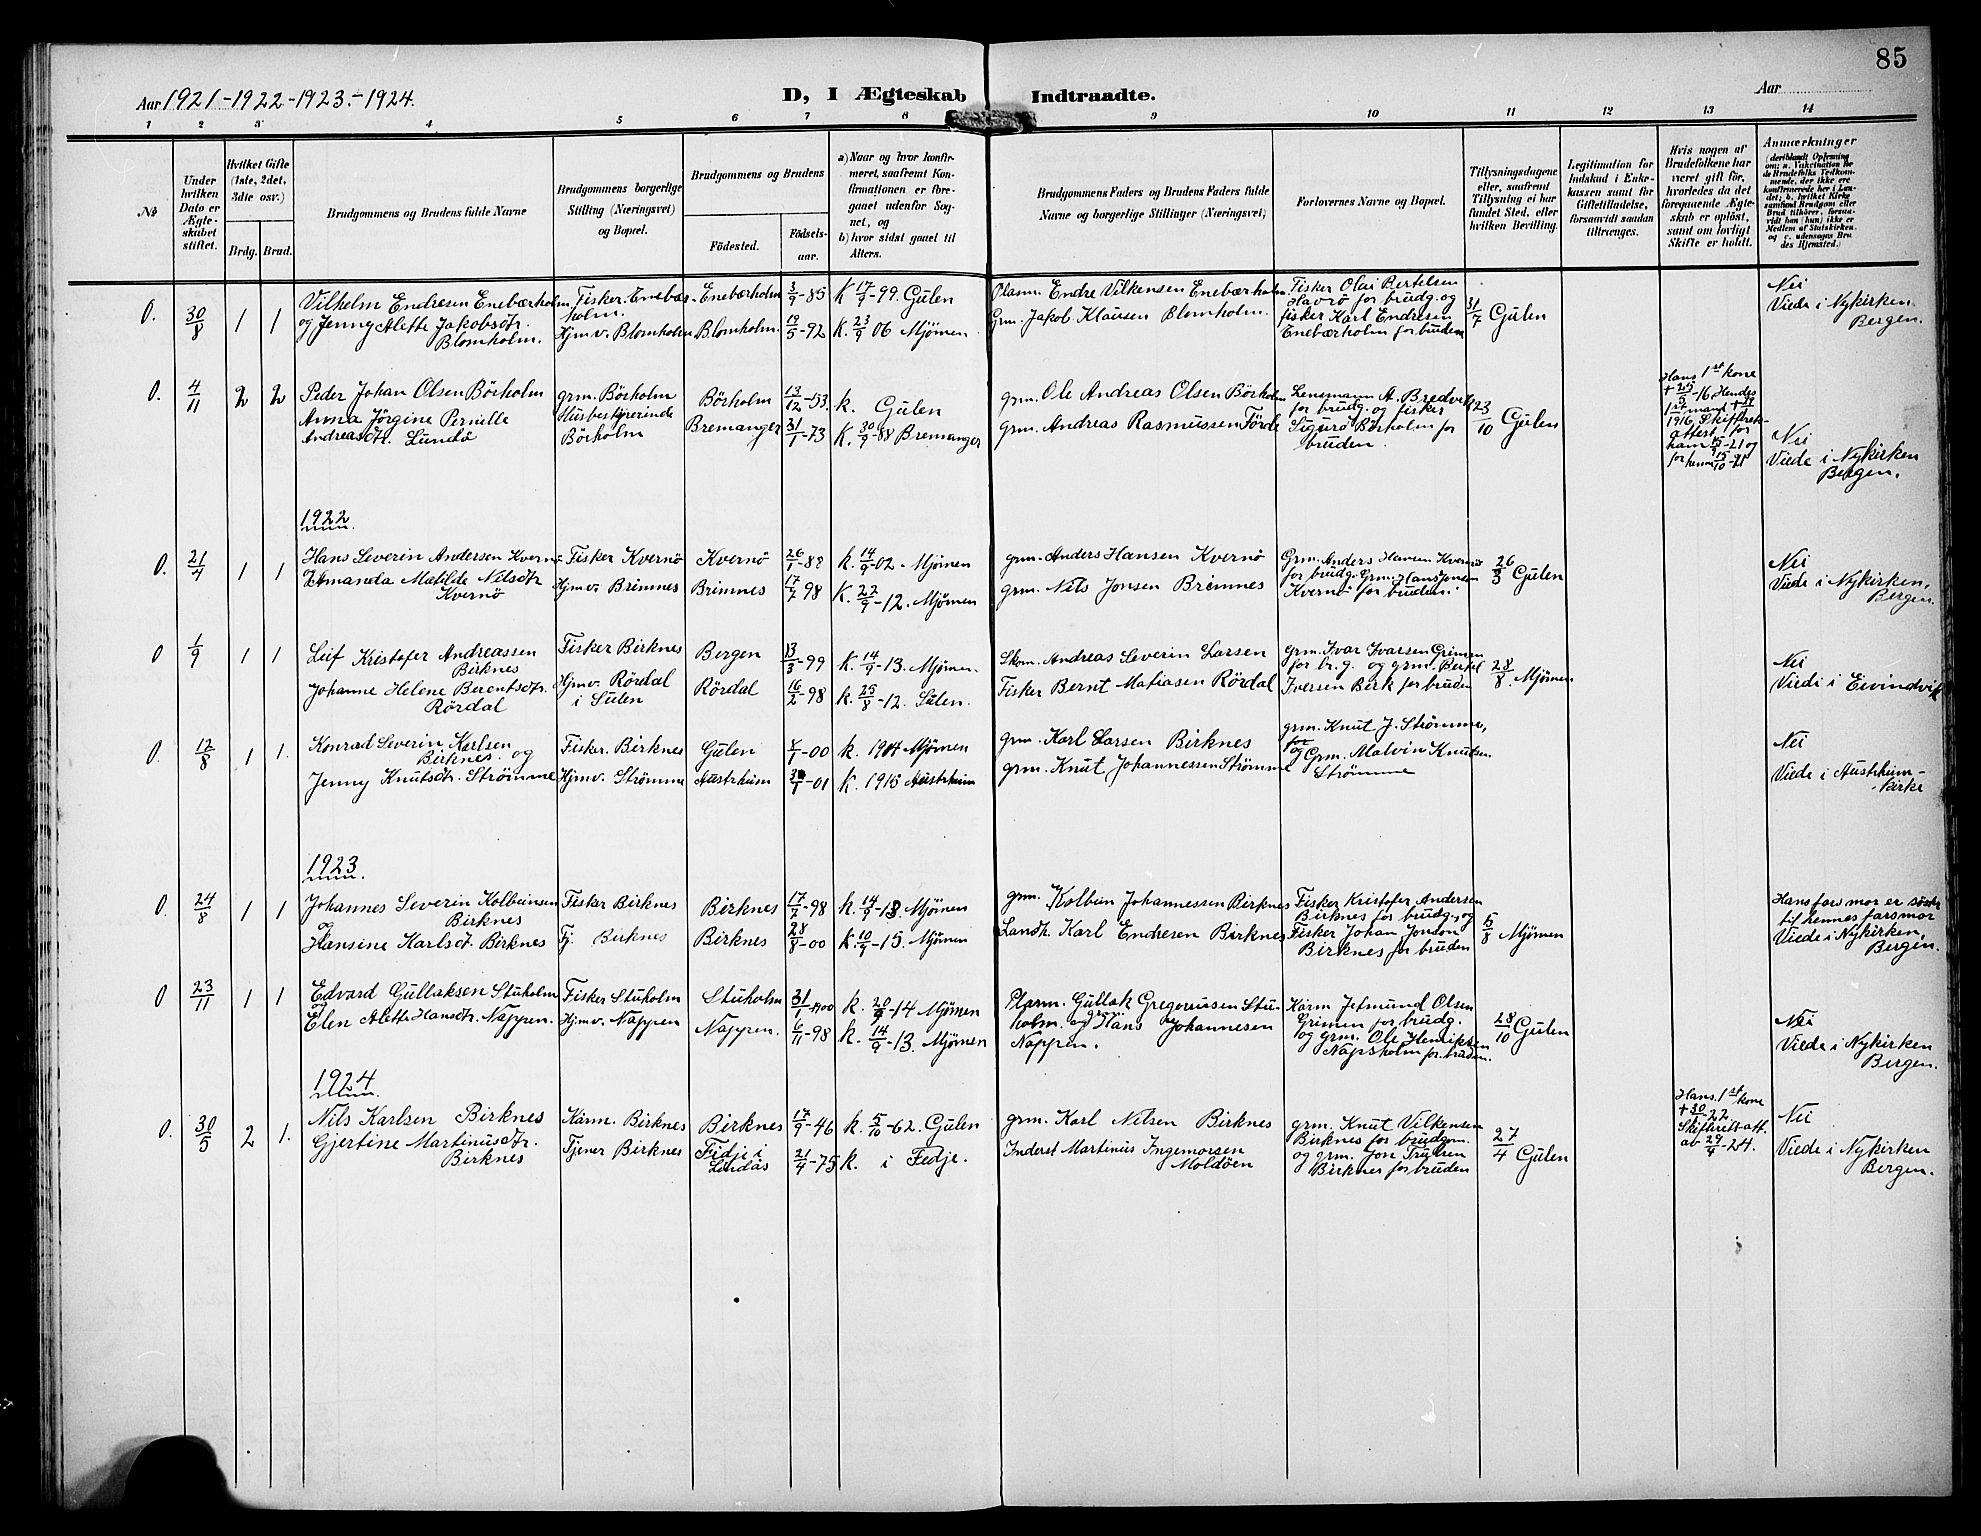 85
Aar 1921-1922-1923.-1924.
D, I Ægteskab Indtraadte.
Aar
1 2 3 4 5 6 7 8 9 10 11 12 13 14
No
Under hvilken Dato er Ægteskabet stiftet.
Hvilket Gifte (1ste, 2det, 3die osv.)
Brdg. Brud.
Brudgommens og Brudens fulde Navne
Brudgommens borgerlige Stilling (Næringsvei) og Bopæl.
Brudgommens og Brudens
Fødested. Fødselsaar.
a) Naar og hvor konfirmeret, saafremt Konfirmationen er foregaaet udenfor Sognet, og
b) hvor sidst gaaet til Alters.
Brudgommens Faders og Brudens Faders fulde Navne og borgerlige Stillinger (Næringsvei)
Forlovernes Navne og Bopæl.
Tillysningsdagene eller, saafremt Tillysning ei har fundet Sted, efter hvilken Bevilling.
Legitimation for Indskud i Enkekassen samt for Giftetilladelse, forsaavidt saadan tiltrænges.
Hvis nogen af Brudefolkene har været gift før, hvorledes da det foregaaende Ægteskab er opløst, samt om lovligt Skifte er holdt.
Anmærkninger
0. 30/8 1 1
Vilhelm Endresen Enebærholm
og Jenny Alette Jakobsdtr.
Blomholm.
Fisker. Enebær-
holm.
Hjmv. Blomholm
Enebærholm 3/9-85 K 17/9-99 Gulen
Blomholm. 19/5-92 K. 23/9 06 Mjömen
Endre Vilkensen Enebærholm
Grm. Jakob Klausen Blomholm.
Fisker Olai Bertelsen
Havrö for brudg. og
fisker Karl Endresen
Enebærholm for bruden
31/7 Gulen
Nei
Viede i Nykirken
Bergen.
0. 4/11 2 2
Peder Johan Olsen Börholm
Anna Jörgine Pernille
Andreasdtr. Lundö
grm. Börholm
Husbestyrerinde
Börholm
Börholm 13/12-53. k. Gulen
Bremanger 31/1-73 K. 30/9-88 Bremanger
grm. Ole Andreas Olsen Börholm
grm. Andreas Rasmussen Förde
Lensmann A. Bredvik
for brudg. og fisker
Sigurd Börholm for
bruden.
23/10 Gulen
Hans 1st kone
+ 25/5-16 Hendes
1st mand +
1916, Skifterets-
attest for
ham -21 og
for henne 15/10-21
Nei
Viede i Nykirken
Bergen.
1922
0. 21/4 1 1
Hans Severin Andersen Kvernö
og Amanda Matilde Nilsdtr
Kvernö
Fisker Kvernö
Hjmv. Brimnes
Kvernö 26/1-88 k. 14/9-02. Mjömen
Brimnes 17/7 98 K. 22/9-12. Mjömen
grm. Anders Hansen Kvernö
grm. Nils Jonsen Brimnes
Grm. Anders Hansen Kvernö
for brudg. Grm. Hans Jonsen
Kvernö for bruden.
26/3 Gulen
Nei
Viede i Nykirken,
Bergen.
0 1/9 1 1
Leif Kristofer Andreassen
Birknes
Johanne Helene Berentsdtr.
Rördal
Fisker Birknes
Hjmv. Rördal
i Sulen
Bergen 13/3-99 K. 14/9-13. Mjömen.
Rördal 16/2-98 k. 25/8-12. Sulen.
Skom. Andreas Severin Larsen
Fisker Bernt Matiasen Rördal
grm. Ivar Ivarsen Grimen
for br.g. og grm. Bertel
Iversen Birk for bruden
28/8. Mjömen
Nei
Viede i Eivindvik
0. 12/8 1 1.
Konrad Severin Karlsen
Birknes. og
Jenny Knutsdtr. Strömme
Fisker. Birknes
Hjmv. Strömme
Gulen -00 k. 1914 Mjömen
Austrheim -01 K. 1915 Austrheim
grm. Karl Larsen Birknes
grm. Knut Johannessen Strömme
grm. Knut J. Strömme,
og Grm. Malvin Knutsen
Strömme
Nei
Viede i Austrheim-
kirke
1923
0. 24/8 1 1
Johannes Severin Kolbeinsen
Birknes
og
Hansine Karlsdt. Birknes
Fisker Birknes
Tj. Birknes
Birknes 17/7-98 k. 14/9-13. Mjömen
Birknes 28/8-00 K. 10/9-15. Mjömen
grm. Kolbein Johannessen Birknes
Landh. Karl Endresen Birknes
Fisker Kristofer Andersen
Birknes for brudg., og
Fisker Johan Jonson
Birknes for bruden
5/8 Mjömen
Hans far mor er söster
til hennes farsmor
Viede i Nykirken,
Bergen.
0 23/11 1 1
Edvard Gullaksen Stuholm
og
Elen Alette Hansdtr. Nappen.
Fisker Stuholm
Hjmv. Nappen
Stuholm 31/1-1900 k. 20/9-14 Mjömen
Nappen. 6/11-98 k. 14/9-13. Mjömen
Plasm. Gullak Gregoriussen Stu-
holm. og grm. Hans Johannesen
Nappen.
Kårm Jetmund Olsen
Grimen for brudg.
og grm. Ole Henriksen
Napsholm for bruden.
28/10 Gulen
Nei
Viede i Nykirken
Bergen.
1924
0. 30/5 2 1.
Nils Karlsen Birknes
Gjertine Martinusdtr.
Birknes
Kårm. Birknes
Tjener Birknes
Birknes 17/9-46 k. 5/10-62. Gulen
Fedje i
Lindås 21/4-75 k. i Fedje.
grm. Karl Nilsen Birknes
Inderst Martinus Ingemorsen
Moldöen
grm. Knut Vilkensen
Birknes for brudgm.
og grm. Jon Trulsen
Birknes for bruden
27/4 Gulen
Hans. 1st kone
+ 30/-22.
Skifterett att.
av 29/4-24.
Nei
Viede i Nykirken
Bergen.